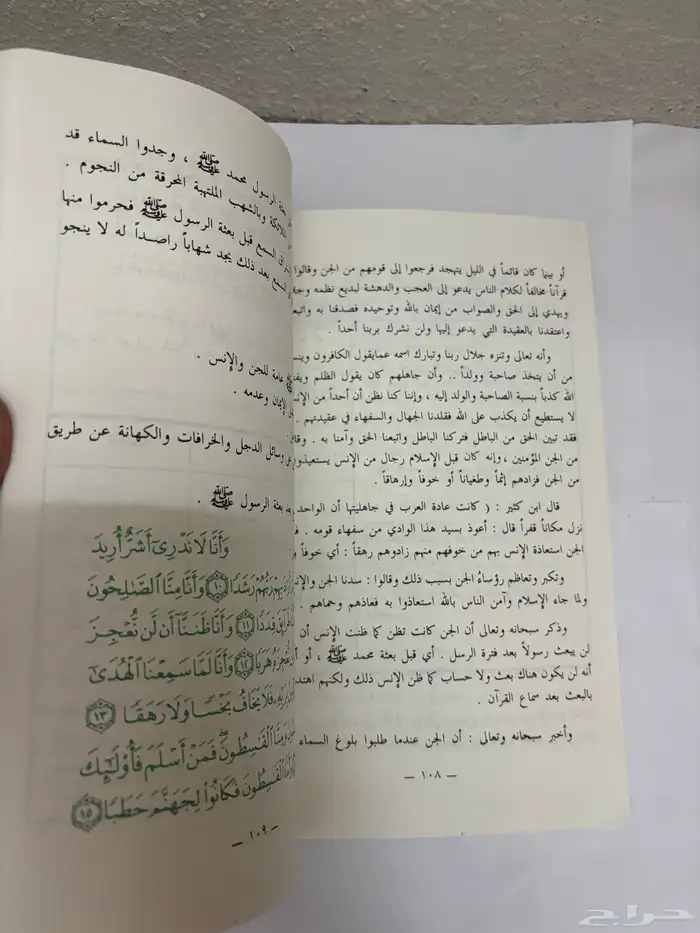 أو بينما كان قائماً في الليل يتهجد فرجعوا إلى قومهم من الجن وقالوا
قرآناً مخالفاً لكلام الناس يدعو إلى العجب والدهشة لبديع نظمه
ويهدي إلى الحق والصواب من إيمان بالله وتوحيده فصدقنا به
واعتقدنا بالعقيدة التي يدعو إليها ولن نشرك بربنا أحداً .
وأنه تعالى وتنزه جلال ربنا وتبارك اسمه عمايقول الكافرون
من أن يتخذ صاحبة وولداً .. وأن جاهلهم كان يقول الظلم
الله كذباً بنسبة الصاحبة والولد إليه ، وإننا كنا نظن أن أحداً من
لا يستطيع أن يكذب على الله فقلدنا الجهال والسفهاء في عقيدتهم .
فقد تبين الحق من الباطل فتركنا الباطل واتبعنا الحق وآمنا به .
من الجن المؤمنين ، وإنه كان قبل الإسلام رجال من الإنس يستعيذون
من الجن فزادهم إثماً وطغياناً أو خوفاً وإرهاقاً .
قال ابن كثير : ( كانت عادة العرب في جاهليتها أن الواحد
نزل مكاناً قفراً قال : أعوذ بسيد هذا الوادي من سفهاء قومه .
الجن استعاذة الإنس بهم من خوفهم منهم زادوهم رهقاً : أي خوفاً
وتكبر وتعاظم رؤساءُ الجن بسبب ذلك وقالوا : سدنا الجن
ولما جاء الإسلام وآمن الناس بالله استعاذوا به فعاذهم وحماهم .
وذكر سبحانه وتعالى أن الجن كانت تظن كما ظنت الإنس أن
لن يبعث رسولاً بعد فترة الرسل . أي قبل بعثة محمد ﷺ ، أو
أنه لن يكون هناك بعث ولا حساب كما ظن الإنس ذلك ولكنهم
بالبعث بعد سماع القرآن .
وأخبر سبحانه وتعالى : أن الجن عندما طلبوا بلوغ السماء
— ١٠٨ —
بعثة الرسول محمد ﷺ ، وجدوا السماء قد
وبالشهب الملتهبة المحرقة من النجوم .
السمع قبل بعثة الرسول ﷺ فحرموا منها
السمع بعد ذلك يجد شهاباً راصداً له لا ينجو
عامة للجن والإنس .
الإيمان وعدمه .
وسائل الدجل والخرافات والكهانة عن طريق
بعد بعثة الرسول ﷺ .
وَأَنَّا لَا نَدْرِىٓ أَشَرٌّ أُرِيدَ
رَبُّهُمْ رَشَدًا ۝١٠ وَأَنَّا مِنَّا ٱلصَّٰلِحُونَ
قِدَدًا ۝١١ وَأَنَّا ظَنَنَّآ أَن لَّن نُّعْجِزَ
هَرَبًا ۝١٢ وَأَنَّا لَمَّا سَمِعْنَا ٱلْهُدَىٰٓ
فَلَا يَخَافُ بَخْسًا وَلَا رَهَقًا ۝١٣
وَمِنَّا ٱلْقَٰسِطُونَ ۖ فَمَنْ أَسْلَمَ فَأُو۟لَٰٓئِكَ
ٱلْقَٰسِطُونَ فَكَانُوا۟ لِجَهَنَّمَ حَطَبًا ۝١٥
— ١٠٩ —
حراج